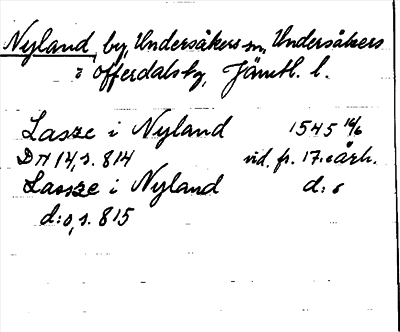 Nyland, by, Undersåkers sn, Undersåkers
o Offerdals tg, Jämtl. l.
Lasze i Nyland 1545 16/6
DN 14, s. 814 vid. fr. 17:e årh.
Lassze i Nyland d:o
d:o, s. 815